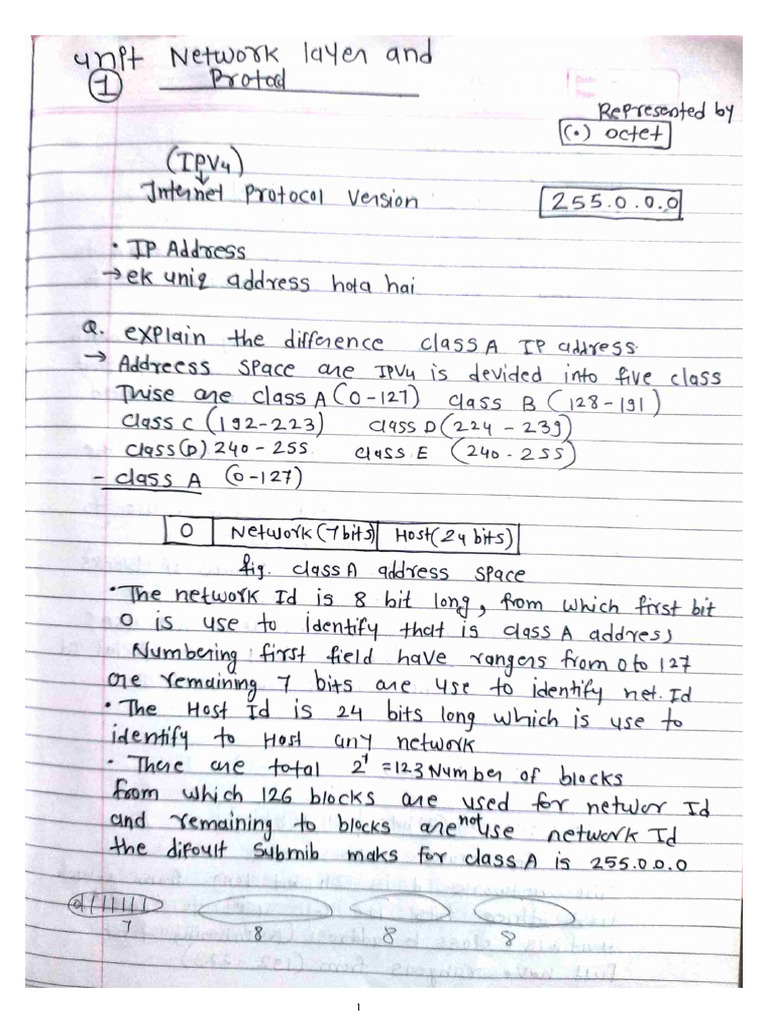 unit Network layer and
① Protocl
Represented by
(•) octet
(IPV4)
↓
Internet Protocol Version
255.0.0.0
• IP Address
→ ek uniq address hota hai
Q. explain the difference class A IP address.
→ Addrecss space are IPV4 is devided into five class
Thise are class A (0-127) class B (128-191)
class C (192-223) class D (224 - 239)
class(D) 240-255 class E (240-255)
- class A (0-127)
0 Network(7bits) Host(24 bits)
fig. class A address space
• The network Id is 8 bit long, from which first bit
0 is use to identify that is class A addres,
Numbering first field have rangers from 0 to 127
are remaining 7 bits are use to identify net. Id
• The Host Id is 24 bits long which is use to
identify to Host any network
• There are total 2⁷ =123 Number of blocks
from which 126 blocks are used for networ Id
and remaining to blocks are not use network Id
the difoult Submib maks for class A is 255.0.0.0
0///////
7 8 8 8
1